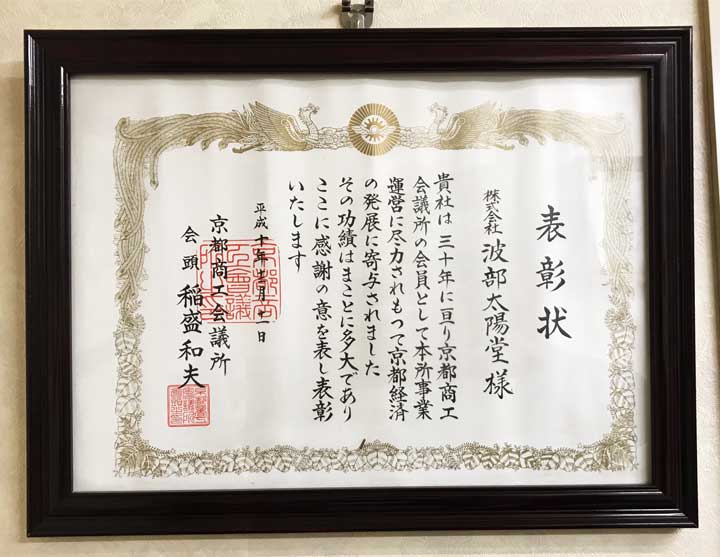 表彰状
株式会社 波部太陽堂 様
貴社は三十年に亘り京都商工
会議所の会員として本所事業
運営に尽力されもつて京都経済
の発展に寄与されました
その功績はまことに多大であり
ここに感謝の意を表し表彰
いたします
平成十年
京都商工会議所
会頭 稲盛和夫